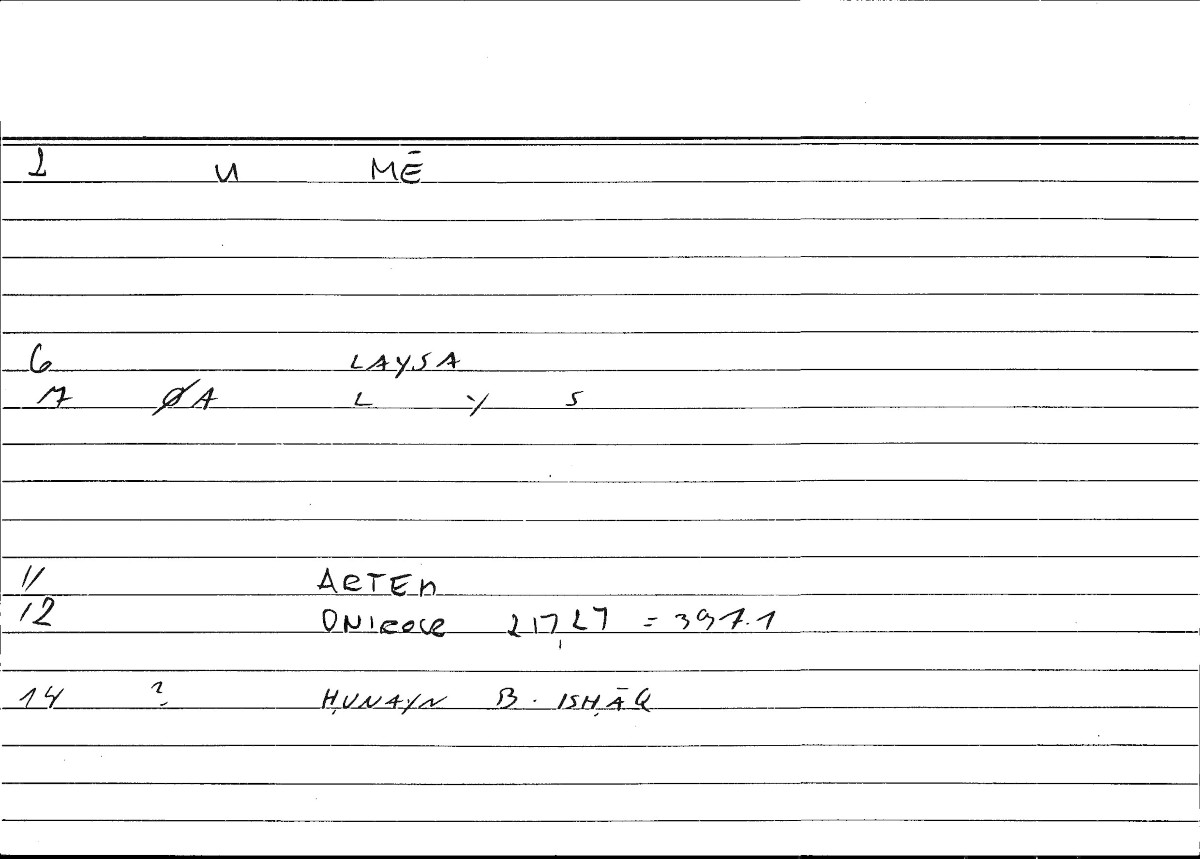 1 U MĒ
6 LAYSA
7 ØA L Y S
11 ARTEM
12 ONIROCR 217,27 = 397.1
14 ? ḤUNAYN B. ISḤĀQ